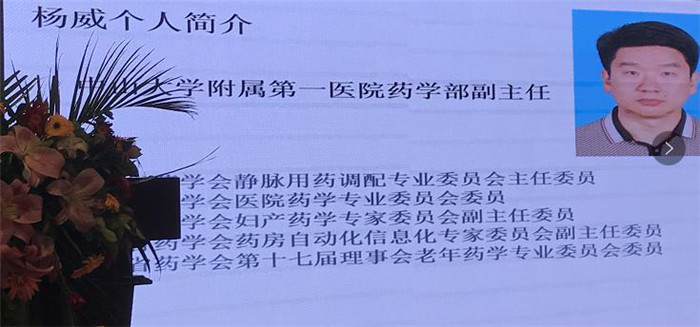 杨威个人简介
中山大学附属第一医院药学部副主任
学会静脉用药调配专业委员会主任委员
学会医院药学专业委员会委员
学会妇产药学专家委员会副主任委员
药学会药房自动化信息化专家委员会副主任委员
省药学会第十七届理事会老年药学专业委员会委员